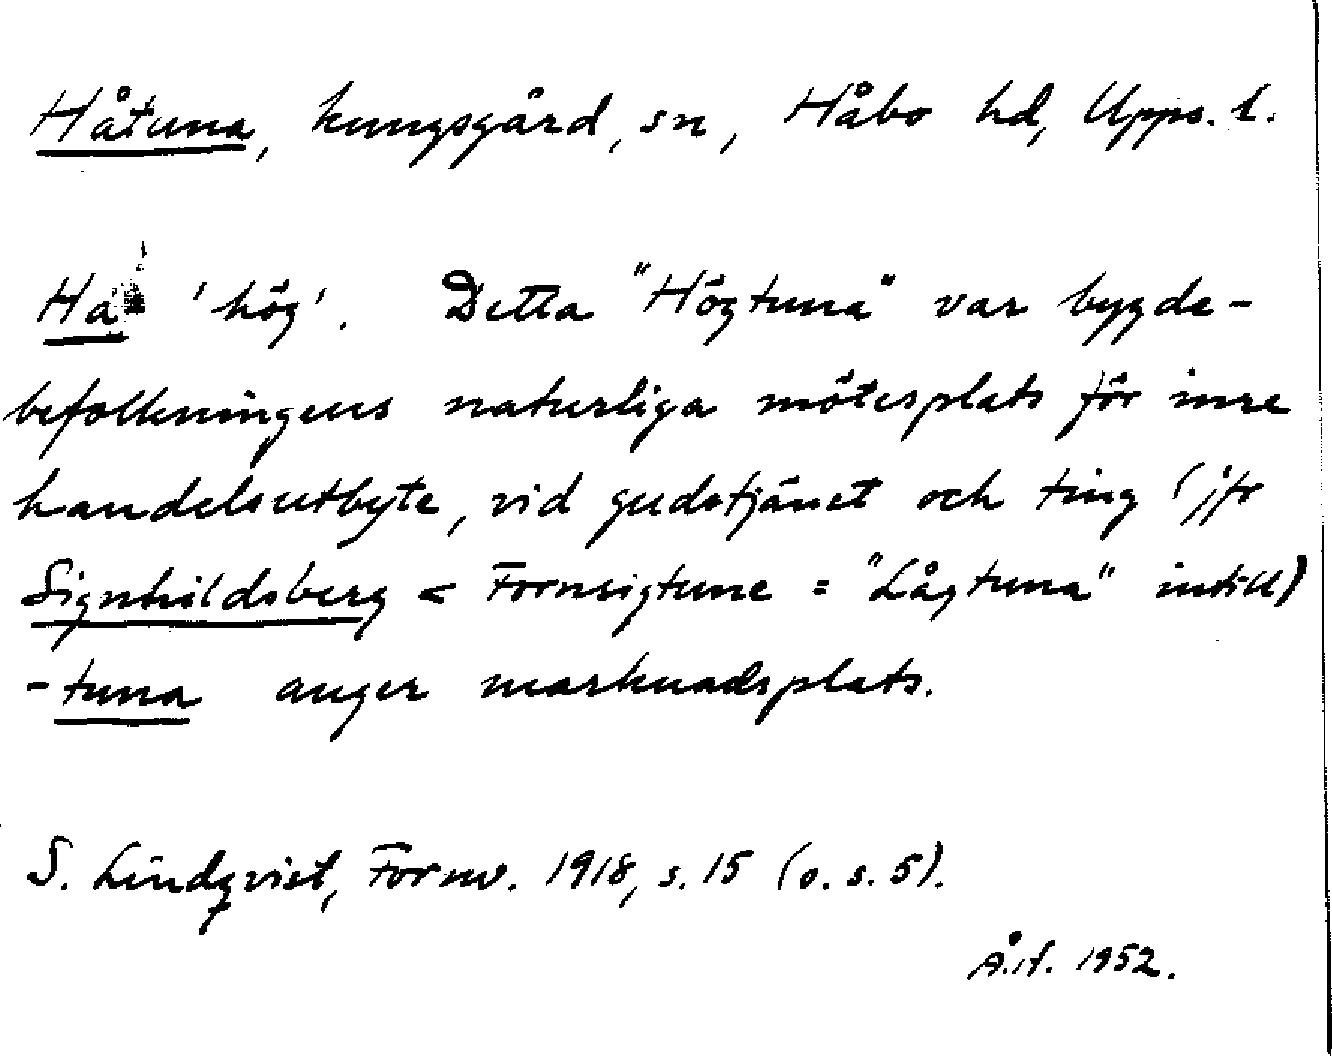 Håtuna, kungsgård, sn, Håbo hd, Upps. l.
Há 'hög'. Detta "Högtuna" var bygde-
befolkningens naturliga mötesplats för inre
handelsutbyte, vid gudstjänst och ting (jfr
Signhildsberg < Fornsigtune = "Lågtuna" intill)
-tuna anger marknadsplats.
S. Lindqvist, Fornv. 1918, s. 15 (o. s. 5).
1952.